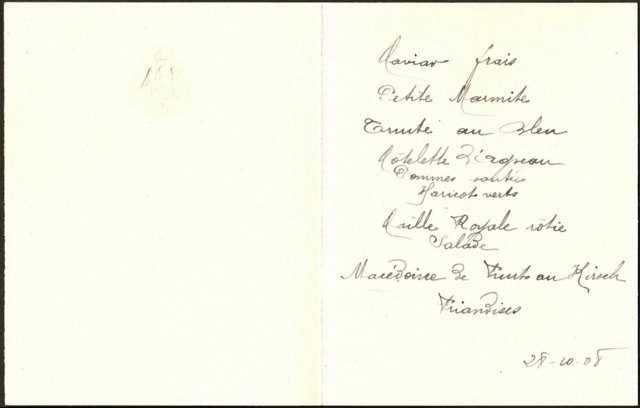 Caviar frais
Petite Marmite
Truite au Bleu
Côtelette d'agneau
Pommes sautées
Haricots verts
Caille Royale rôtie
Salade
Macédoine de Fruits au Kirsch
Friandises
28-10-08